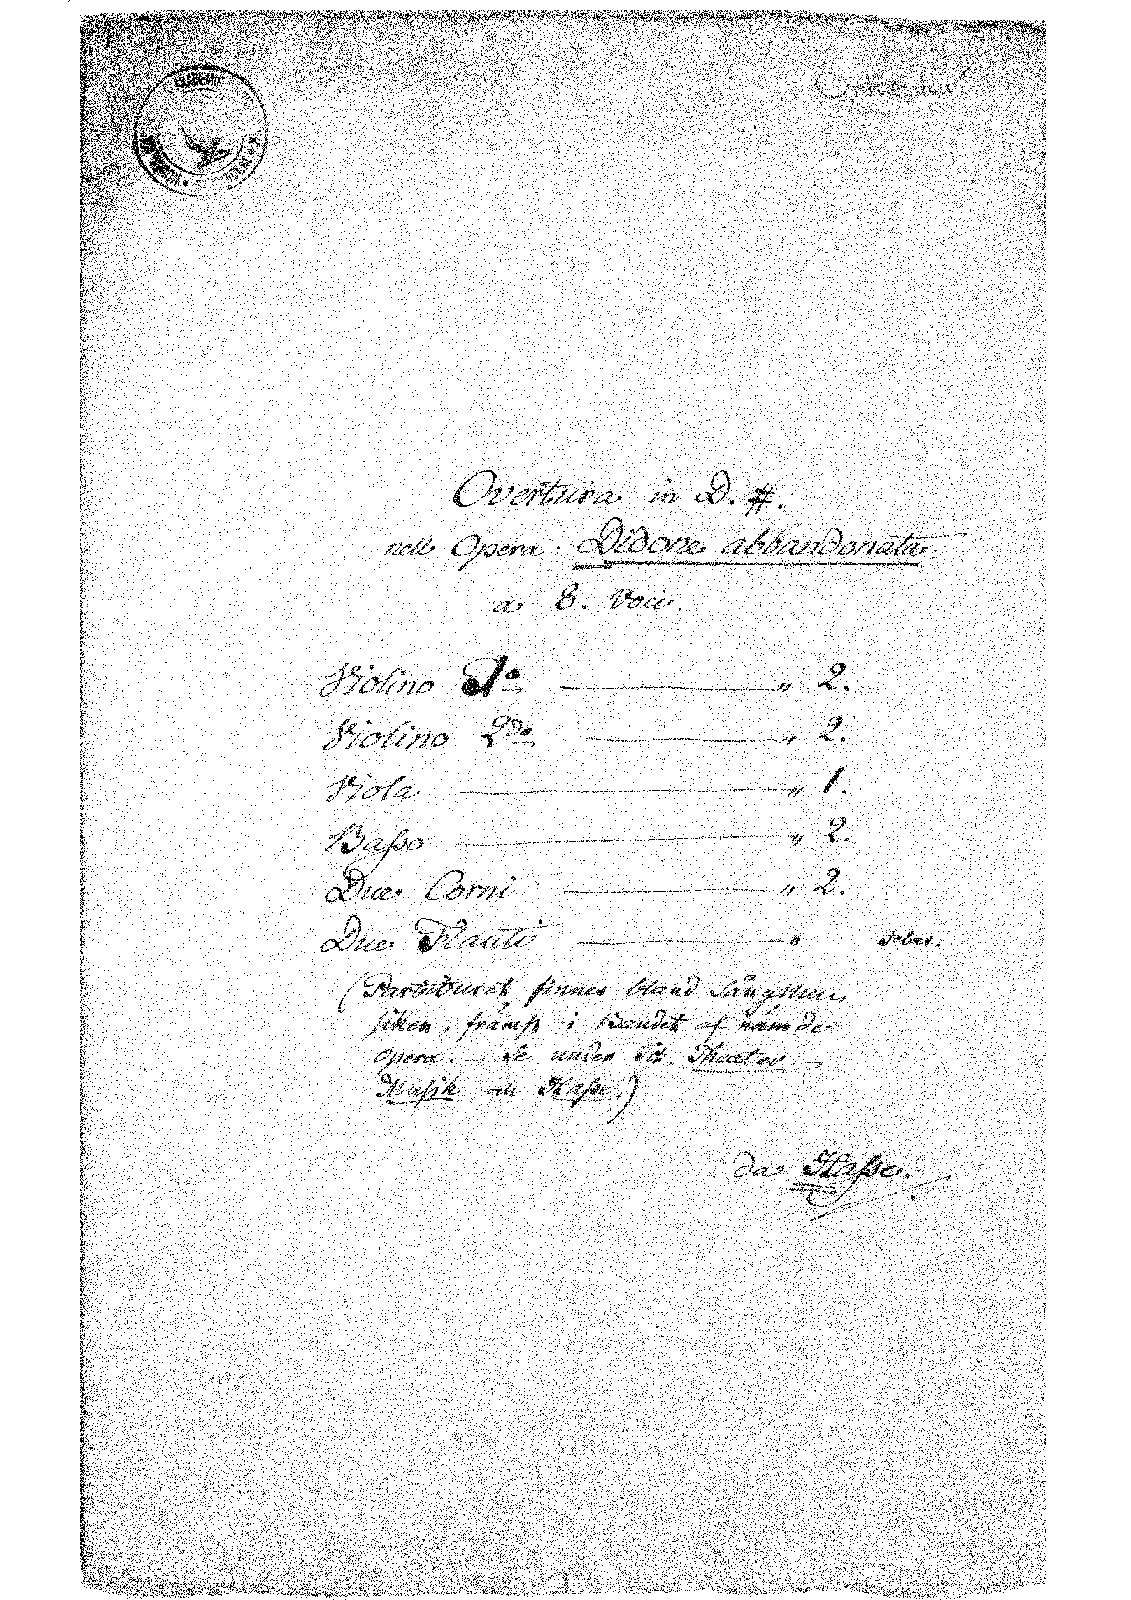 Overtura in D. #.
nell Opera Didone abbandonata
a 8. Voci.
Violino 1o — " 2.
Violino 2do — " 2.
Viola — " 1.
Baſso — " 2.
Due Corni — " 2.
Due Flauti — "
(Partituret finnes bland Sångmu-
siken, främst i bandet af nämde
opera. Se under Tit. Theater
Musik af Haſse.)
da Haſse.